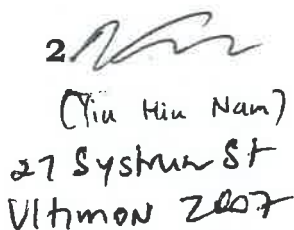 2
(Yiu Hiu Nam)
27 Systrum St
Ultimon 2007